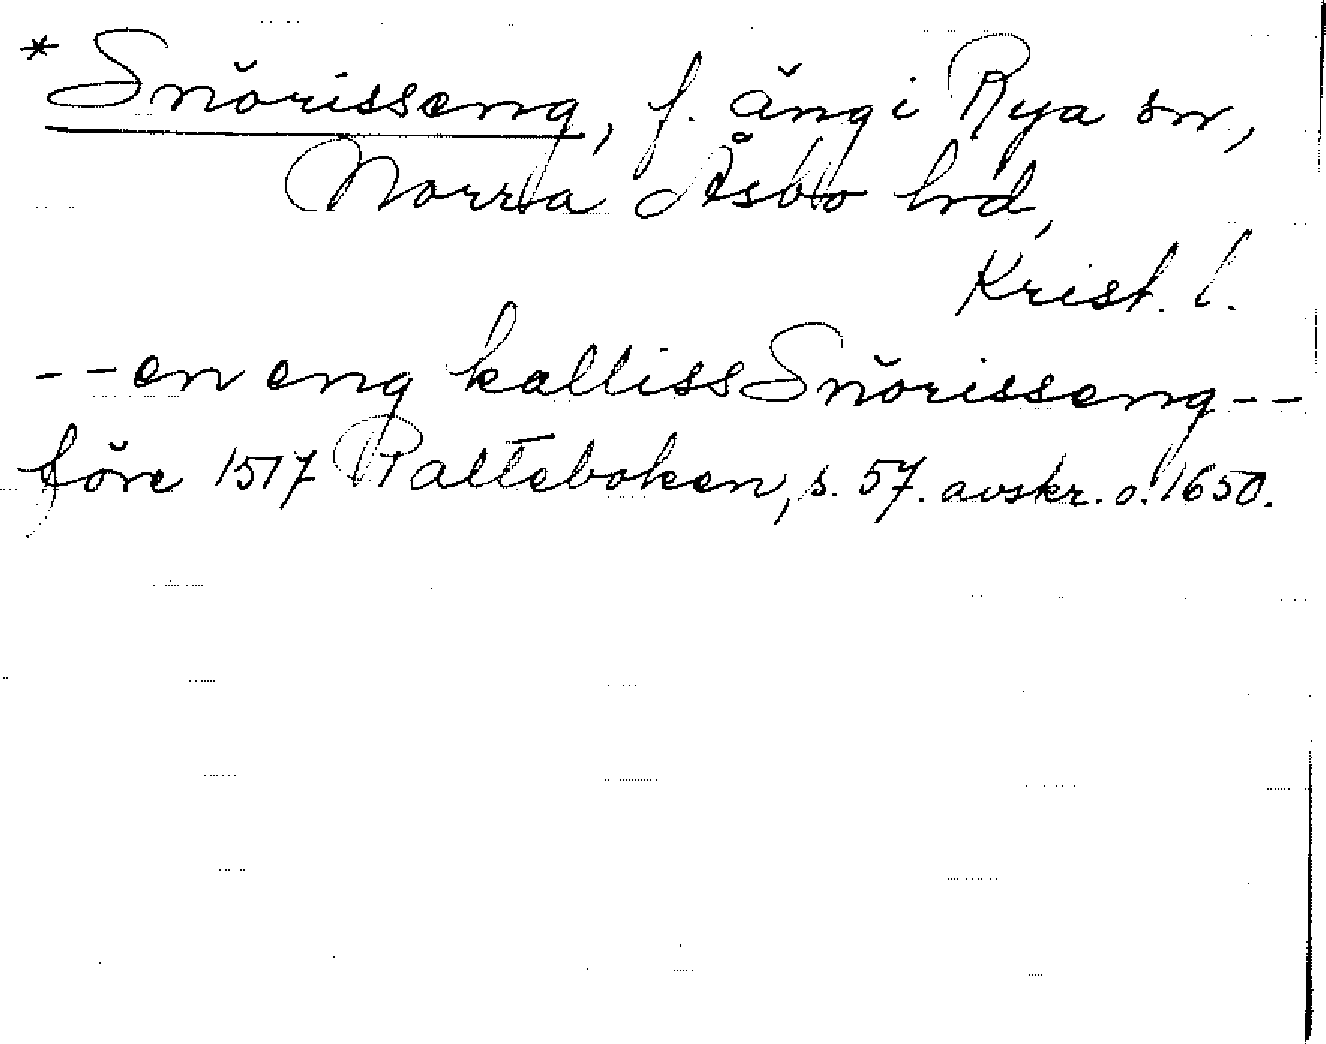 * Snörisseng, f. äng i Rya sn,
Norra Åsbo hrd,
Krist. l.
--en eng kalliss Snörisseng--
före 1517 Palteboken, s. 57. avskr. o. 1650.